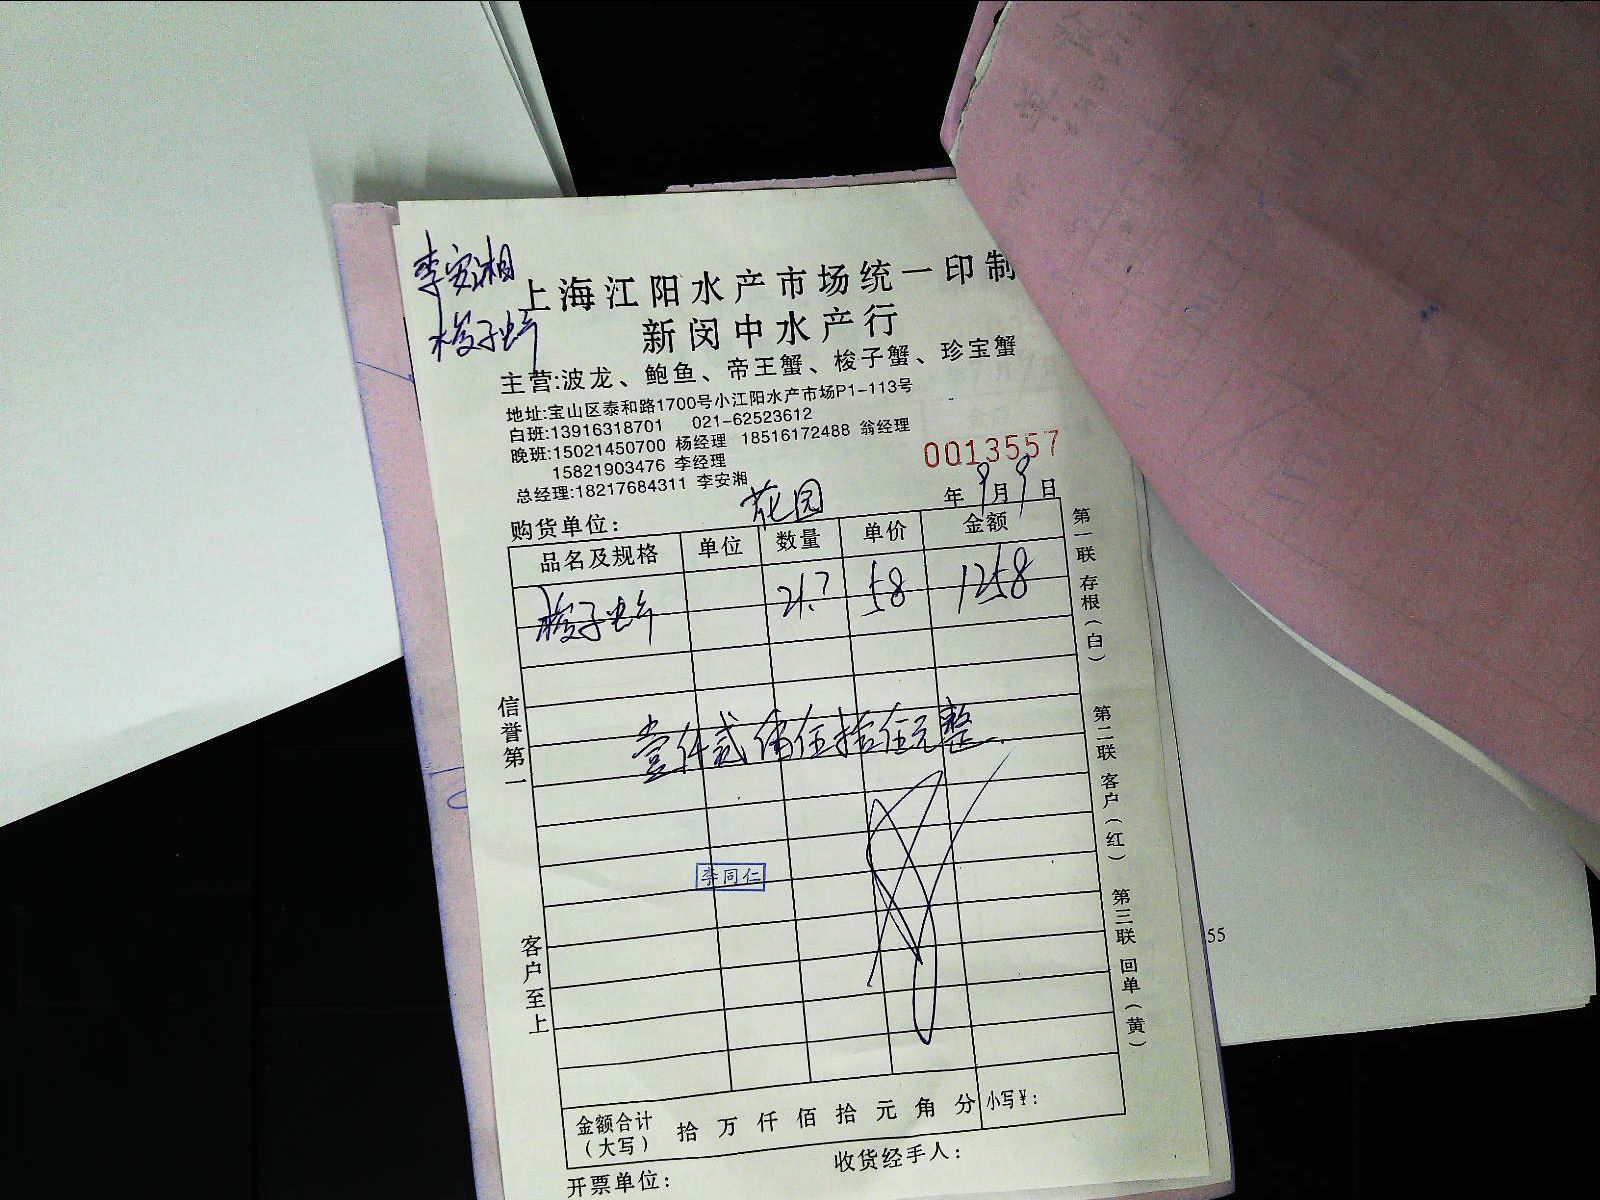 李安湘
梭子蟹
上海江阳水产市场统一印制
新闵中水产行
主营:波龙、鲍鱼、帝王蟹、梭子蟹、珍宝蟹
地址:宝山区泰和路1700号小江阳水产市场P1-113号
白班:13916318701 021-62523612
晚班:15021450700 杨经理 18516172488 翁经理
15821903476 李经理
总经理:18217684311 李安湘
0013557
购货单位: 花园 年9月9日
品名及规格 单位 数量 单价 金额
梭子蟹 21.7 58 1258
壹仟贰佰伍拾伍元整
李同仁
信誉第一
客户至上
第一联 存根(白)
第二联 客户(红)
第三联 回单(黄)
金额合计(大写) 拾 万 仟 佰 拾 元 角 分 小写¥:
开票单位: 收货经手人:
55